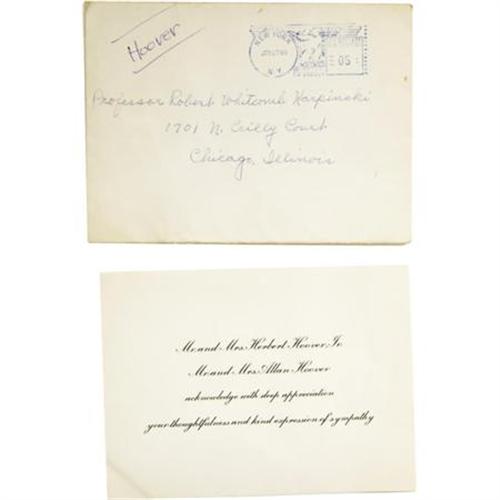 Hoover
NEW YORK
N.Y.
05
Professor Robert Whitcomb Karpinski
1701 N. Crilly Court
Chicago, Illinois
Mr. and Mrs. Herbert Hoover, Jr.
Mr. and Mrs. Allan Hoover
acknowledge with deep appreciation
your thoughtfulness and kind expression of sympathy